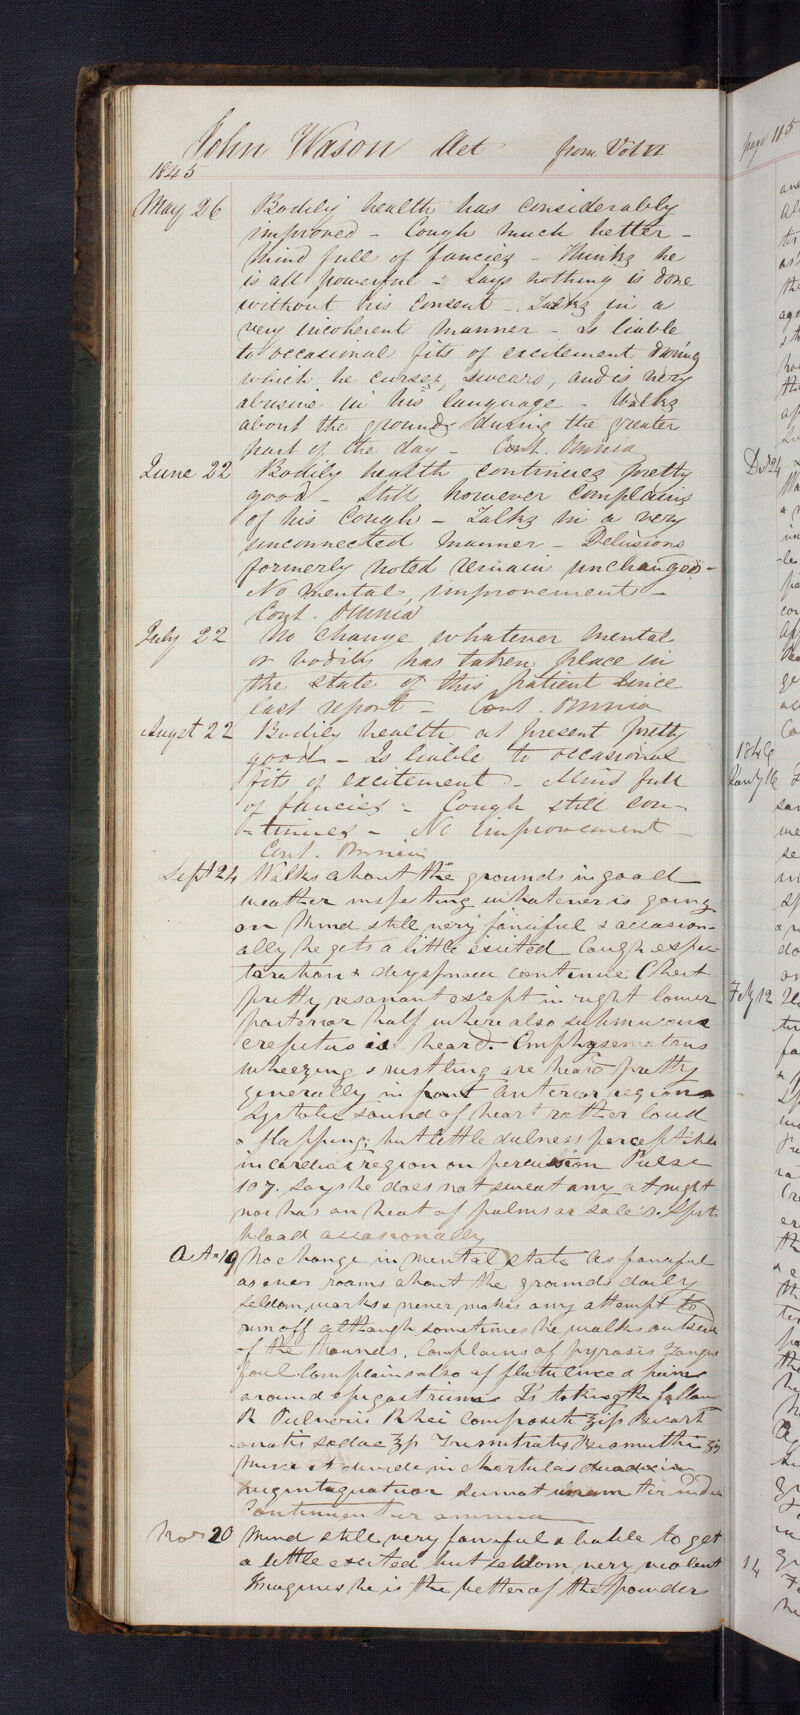 John Wason Aet from Vol VI
1845
May 26 Bodily health has considerably
improved - Cough much better -
Mind full of fancies - Thinks he
is all powerful - Says nothing is done
without his Consent - Talks in a
very incoherent Manner - Is liable
to occasional fits of excitement during
which he curses, swears, and is very
abusive in his language - Walks
about the grounds during the greater
part of the day - Cont. Omnia
June 22 Bodily health continues pretty
good - Still however Complains
of his Cough - Talks in a very
unconnected Manner - Delusions
formerly noted remain unchanged -
No mental improvement -
Cont. Omnia
July 22 No Change whatever mental
or bodily has taken place in
the state of this patient since
last report - Cont. Omnia
Augst 22 Bodily health at present pretty
good - Is liable to occasional
fits of excitement - Mind full
of fancies - Cough still con-
-tinues - No improvement -
Cont. Omnia
Sept 24 Walks about the grounds in good
weather inspecting whatever is going
on Mind still very fanciful & occasion-
ally he gets a little excited Cough expec
toration & dyspnoea continue Chest
pretty resonant except in right lower
posterior half where also submucous
crepitus is heard. Emphysematous
wheezing & rustling are heard pretty
generally in front Anterior regions
Systolic sound of heart rather loud
& flapping, but little dulness perceptible
in cardiac region on percussion Pulse
107. Says he does not sweat any at night
nor has an heat of palms or soles. Spit
blood occasionally
19 No change in mental state As fanciful
as ever roams about the grounds daily
seldom works & never makes any attempt to
run off although sometimes he walks outside
of the bounds. Complains of pyrosis Tongue
foul Complains also of flatulence & pains
around epigastrium Is taking the follow
R Pulveris Rhei Compositi
sodae Trisnitratis Bismuthi
divide in Chartulas
viginti quatuor Sumat unam ter indies
Continuentur omnia
Nov 20 Mind still very fanciful & liable to get
a little excited but seldom very violent
Imagines he is the better of the powders
page 115
Decr 24
1846
Jany 16
Feby 12
14